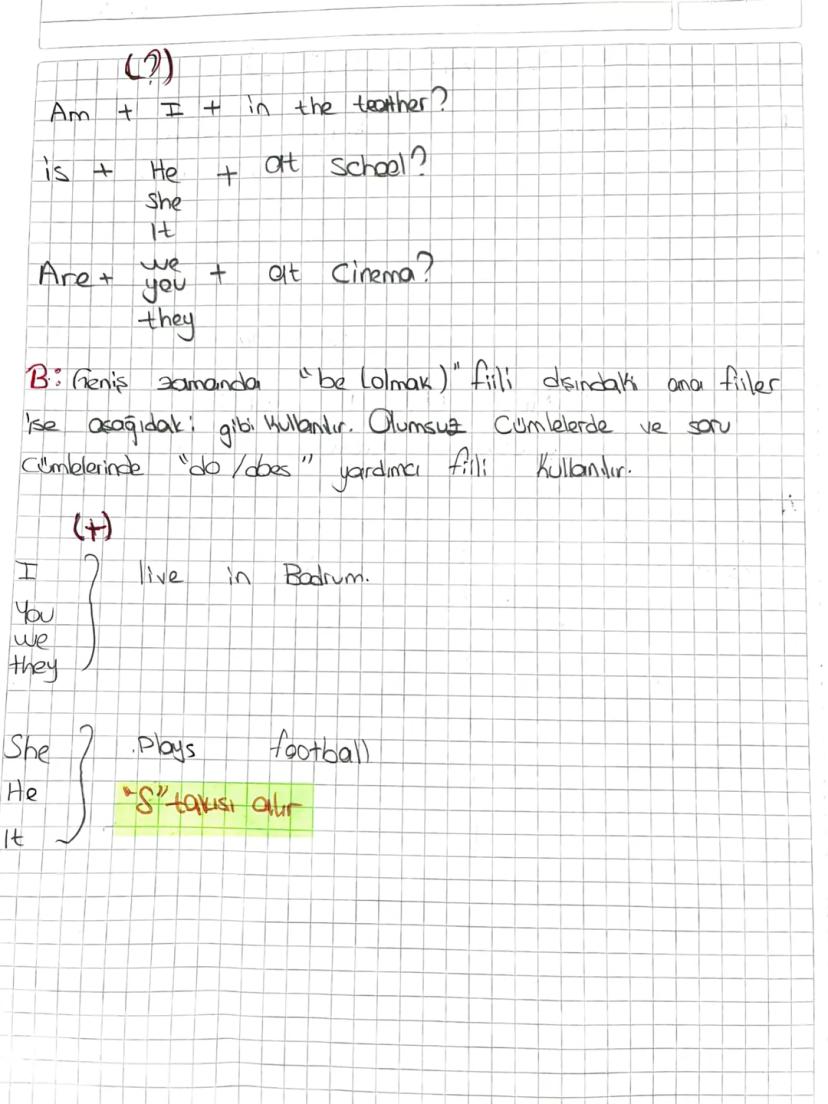 (?)
Am + I + in the teather?
is + He + at school?
she
It
Are + we + at cinema?
you
they
B: Geniş zamanda "be (olmak)" fiili dışındaki ana fiiler
ise aşağıdaki gibi kullanılır. Olumsuz cümlelerde ve soru
cümlelerinde "do/does" yardımcı fiili kullanılır.
(+)
I live in Bodrum.
You
we
they
She plays football
He "S" takısı alır
It